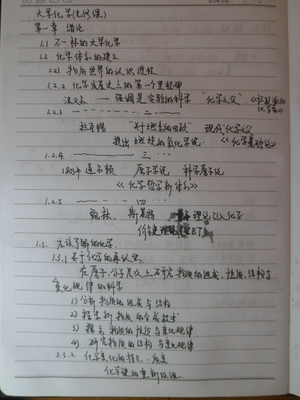 大学化学(先修课)
第一章 绪论
1.1 不一样的大学化学
1.2 化学体系的建立
1.2.1 物质世界的认识进程
1.2.2 化学发展史上的第一个里程碑
波义耳 — 强调是实验的科学 "化学之父"
1.2.3 — — — — — — — 二 —
拉瓦锡 "关于燃素的回顾" 现代化学之父
提出燃烧的氧化学说
1.2.4 — — — — — 三 — —
1803年 道尔顿 原子学说 科学原子论
《化学哲学新体系》
1.2.5 — — — — — 四 — —
鲍林, 斯莱特 理论引入化学
价键理论(VBT)
1.3. 应该了解的化学
1.3.1 关于化学的再认识
在原子,分子层次上研究物质的组成、性质、结构与
变化规律的科学
1) 分析物质的组成与结构
2) 探索新物质的合成技术
3) 揭示物质的性质与变化规律
4) 研究物质的结构与变化规律
1.3.2 化学变化的特征:质变
化学键的重新改组